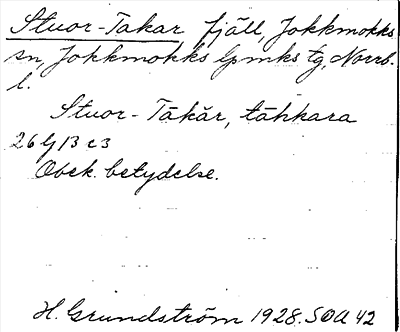 Stuor-Takar fjäll, Jokkmokks
sn, Jokkmokks lpmks tg, Norrb.
l.
Stuor-Tākăr, tāhkara
26 G B c 3
Obek. betydelse.
H. Grundström 1928. SOA 42